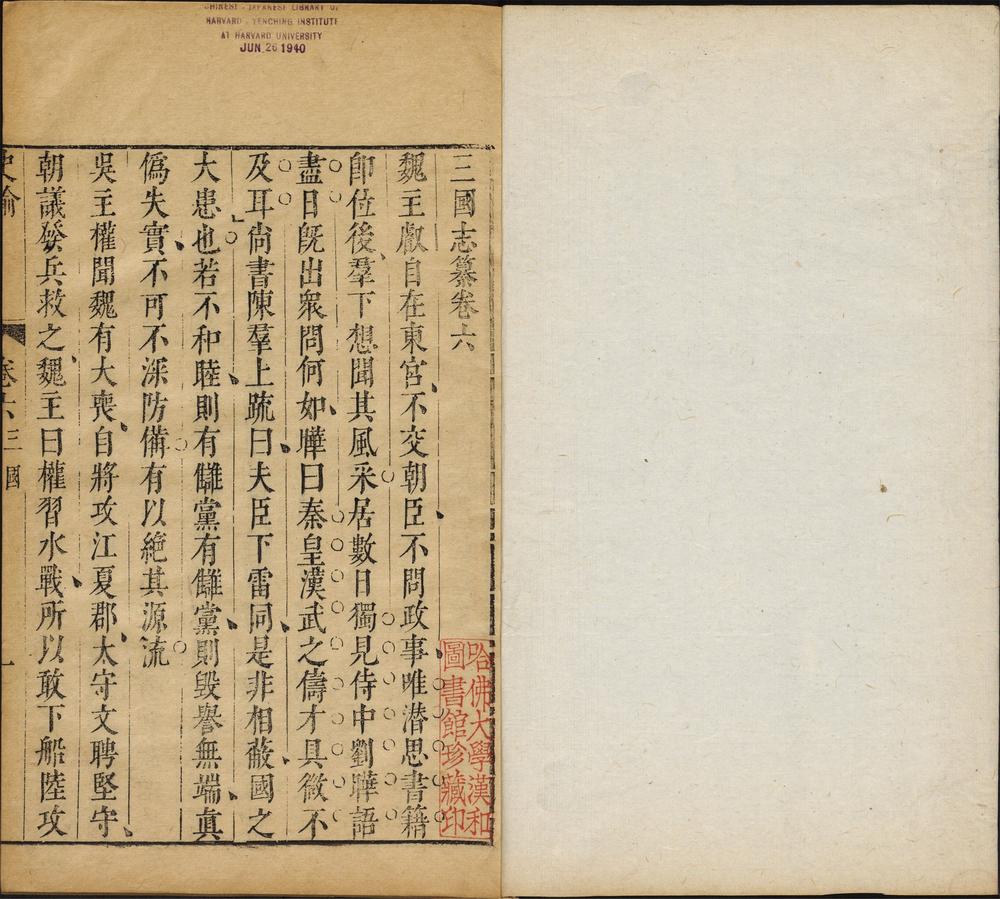 CHINESE - JAPANESE LIBRARY OF
HARVARD - YENCHING INSTITUTE
AT HARVARD UNIVERSITY
JUN 26 1940
三國志纂卷六
魏主叡自在東宮不交朝臣不問政事唯潜思書籍
卽位後羣下想聞其風采居數日獨見侍中劉曄語
盡日旣出衆問何如曄曰秦皇漢武之儔才具微不
及耳尙書陳羣上疏曰夫臣下雷同是非相蔽國之
大患也若不和睦則有雠黨有雠黨則毀譽無端眞
僞失實不可不深防備有以絶其源流
吳主權聞魏有大喪自將攻江夏郡太守文聘堅守
朝議發兵救之魏主曰權習水戰所以敢下船陸攻
史論 卷六 三國 一
哈佛大學漢和
圖書館珍藏印